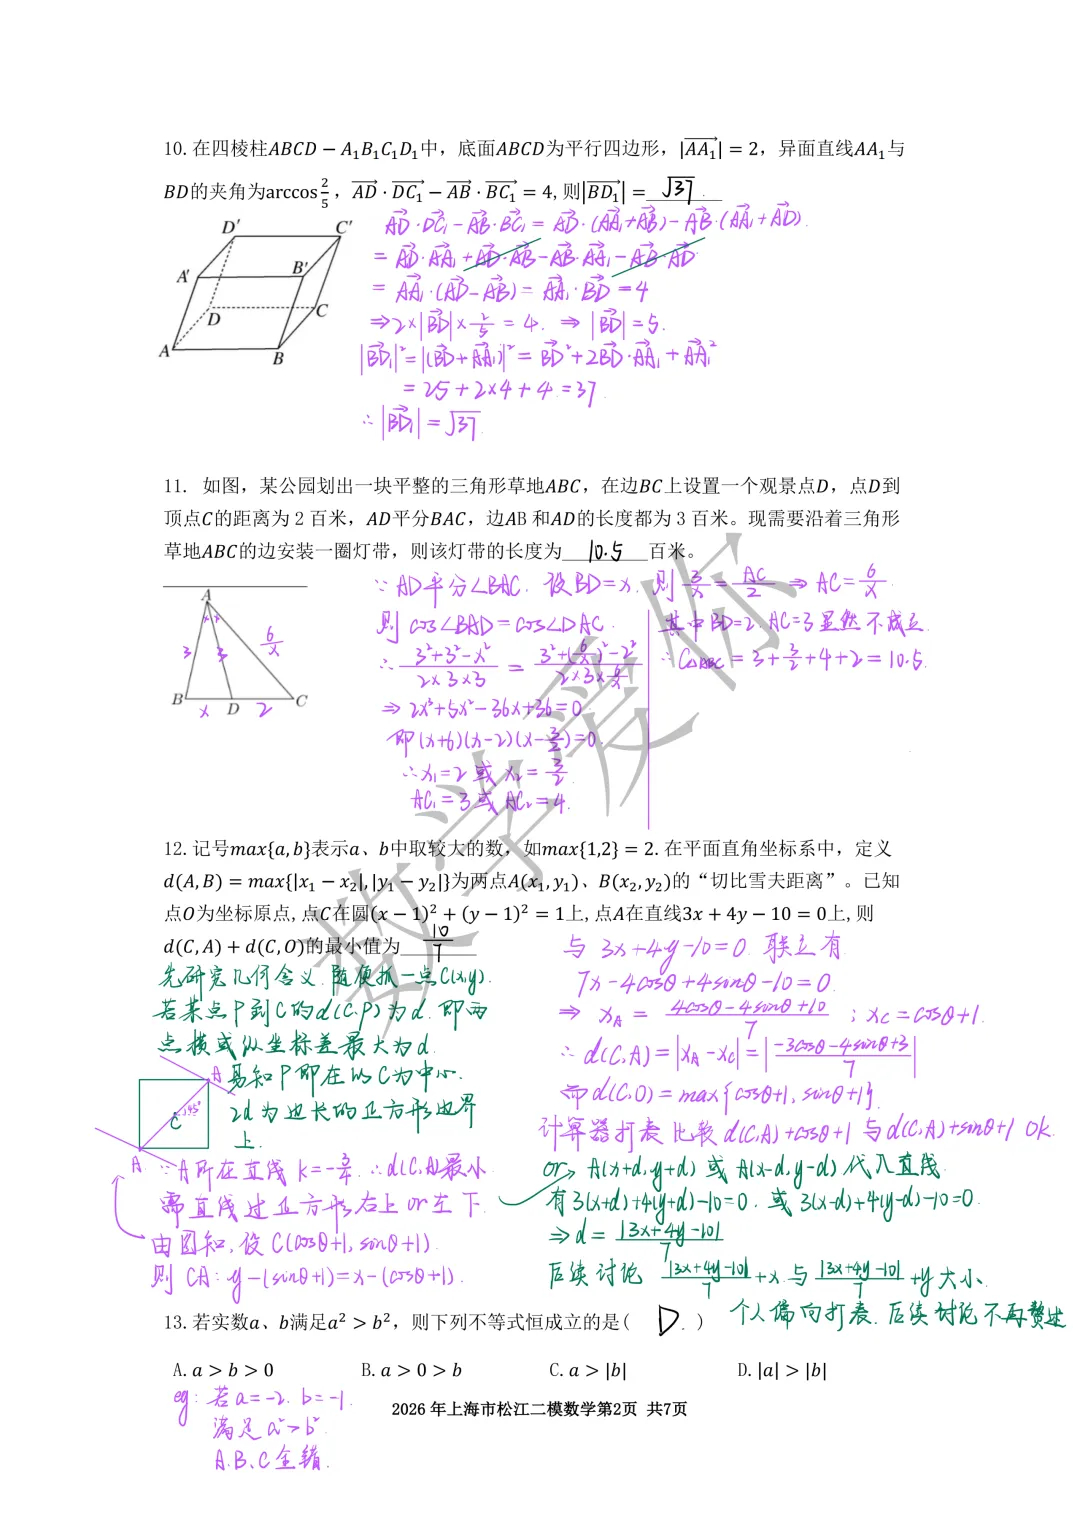 10.在四棱柱ABCD − A₁B₁C₁D₁中，底面ABCD为平行四边形，|AA₁| = 2，异面直线AA₁与
BD的夹角为arccos 2/5，AD · DC₁ − AB · BC₁ = 4,则|BD₁| = √37
AD·DC₁−AB·BC₁ = AD·(AA₁+AB)−AB·(AA₁+AD).
= AD·AA₁+AD·AB−AB·AA₁−AB·AD
= AA₁·(AD−AB) = AA₁·BD = 4
⇒2×|BD|×2/5 = 4. ⇒ |BD| = 5.
|BD₁|² = |(BD+AA₁)|² = BD²+2BD·AA₁+AA₁²
= 25+2×4+4 = 37
∴|BD₁| = √37.
D' C'
A' B'
D C
A B
11. 如图，某公园划出一块平整的三角形草地ABC，在边BC上设置一个观景点D，点D到
顶点C的距离为 2 百米，AD平分BAC，边AB 和AD的长度都为 3 百米。现需要沿着三角形
草地ABC的边安装一圈灯带，则该灯带的长度为 10.5 百米。
A
3 3 6/x
B x D 2 C
∵AD平分∠BAC. 设BD=x. 则 3/x = AC/2 ⇒ AC = 6/x
则 cos∠BAD = cos∠DAC.
∴ (3²+3²−x²)/(2×3×3) = (3²+(6/x)²−2²)/(2×3×6/x)
⇒ 2x³+5x²−36x+36=0
即(x+6)(x−2)(x−3/2)=0.
∴x₁=2 或 x₂=3/2.
AC₁=3 或 AC₂=4.
其中BD=2. AC=3显然不成立
∴C△ABC = 3+3/2+4+2 = 10.5.
12.记号max{a, b}表示a、b中取较大的数，如max{1,2} = 2.在平面直角坐标系中，定义
d(A, B) = max{|x₁ − x₂|, |y₁ − y₂|}为两点A(x₁, y₁)、B(x₂, y₂)的“切比雪夫距离”。已知
点O为坐标原点,点C在圆(x − 1)² + (y − 1)² = 1上,点A在直线3x + 4y − 10 = 0上,则
d(C, A) + d(C, O)的最小值为 10/7
先研究几何含义. 随便抓一点C(x,y).
若某点P到C的d(C.P)为d. 即两
点横或纵坐标差最大为d.
易知P即在以C为中心.
2d为边长的正方形边界
上.
A
C 45°
A
∵A所在直线k=−3/4. ∴d(C,A)最小
需直线过正方形右上or左下.
由图知,设C(cosθ+1, sinθ+1).
则CA: y−(sinθ+1)=x−(cosθ+1).
与 3x+4y−10=0. 联立有
7x−4cosθ+4sinθ−10=0.
⇒ x_A = (4cosθ−4sinθ+10)/7 ; x_C=cosθ+1.
∴ d(C,A)=|x_A−x_C|=|(−3cosθ−4sinθ+3)/7|
而d(C,O)=max{cosθ+1, sinθ+1}.
计算器打表比较d(C,A)+cosθ+1与d(C,A)+sinθ+1 OK.
or→ A(x+d,y+d) 或 A(x−d,y−d)代入直线
有3(x+d)+4(y+d)−10=0. 或 3(x−d)+4(y−d)−10=0.
⇒d = |3x+4y−10|/7
后续讨论 |3x+4y−10|/7 +x 与 |3x+4y−10|/7 +y大小.
个人偏向打表. 后续讨论不再赘述
13.若实数a、b满足a² > b²，则下列不等式恒成立的是( D. )
A. a > b > 0 B. a > 0 > b C. a > |b| D. |a| > |b|
eg: 若a=−2. b=−1.
满足a²>b²
A.B.C全错.
2026 年上海市松江二模数学第2页 共7页
数学爱你